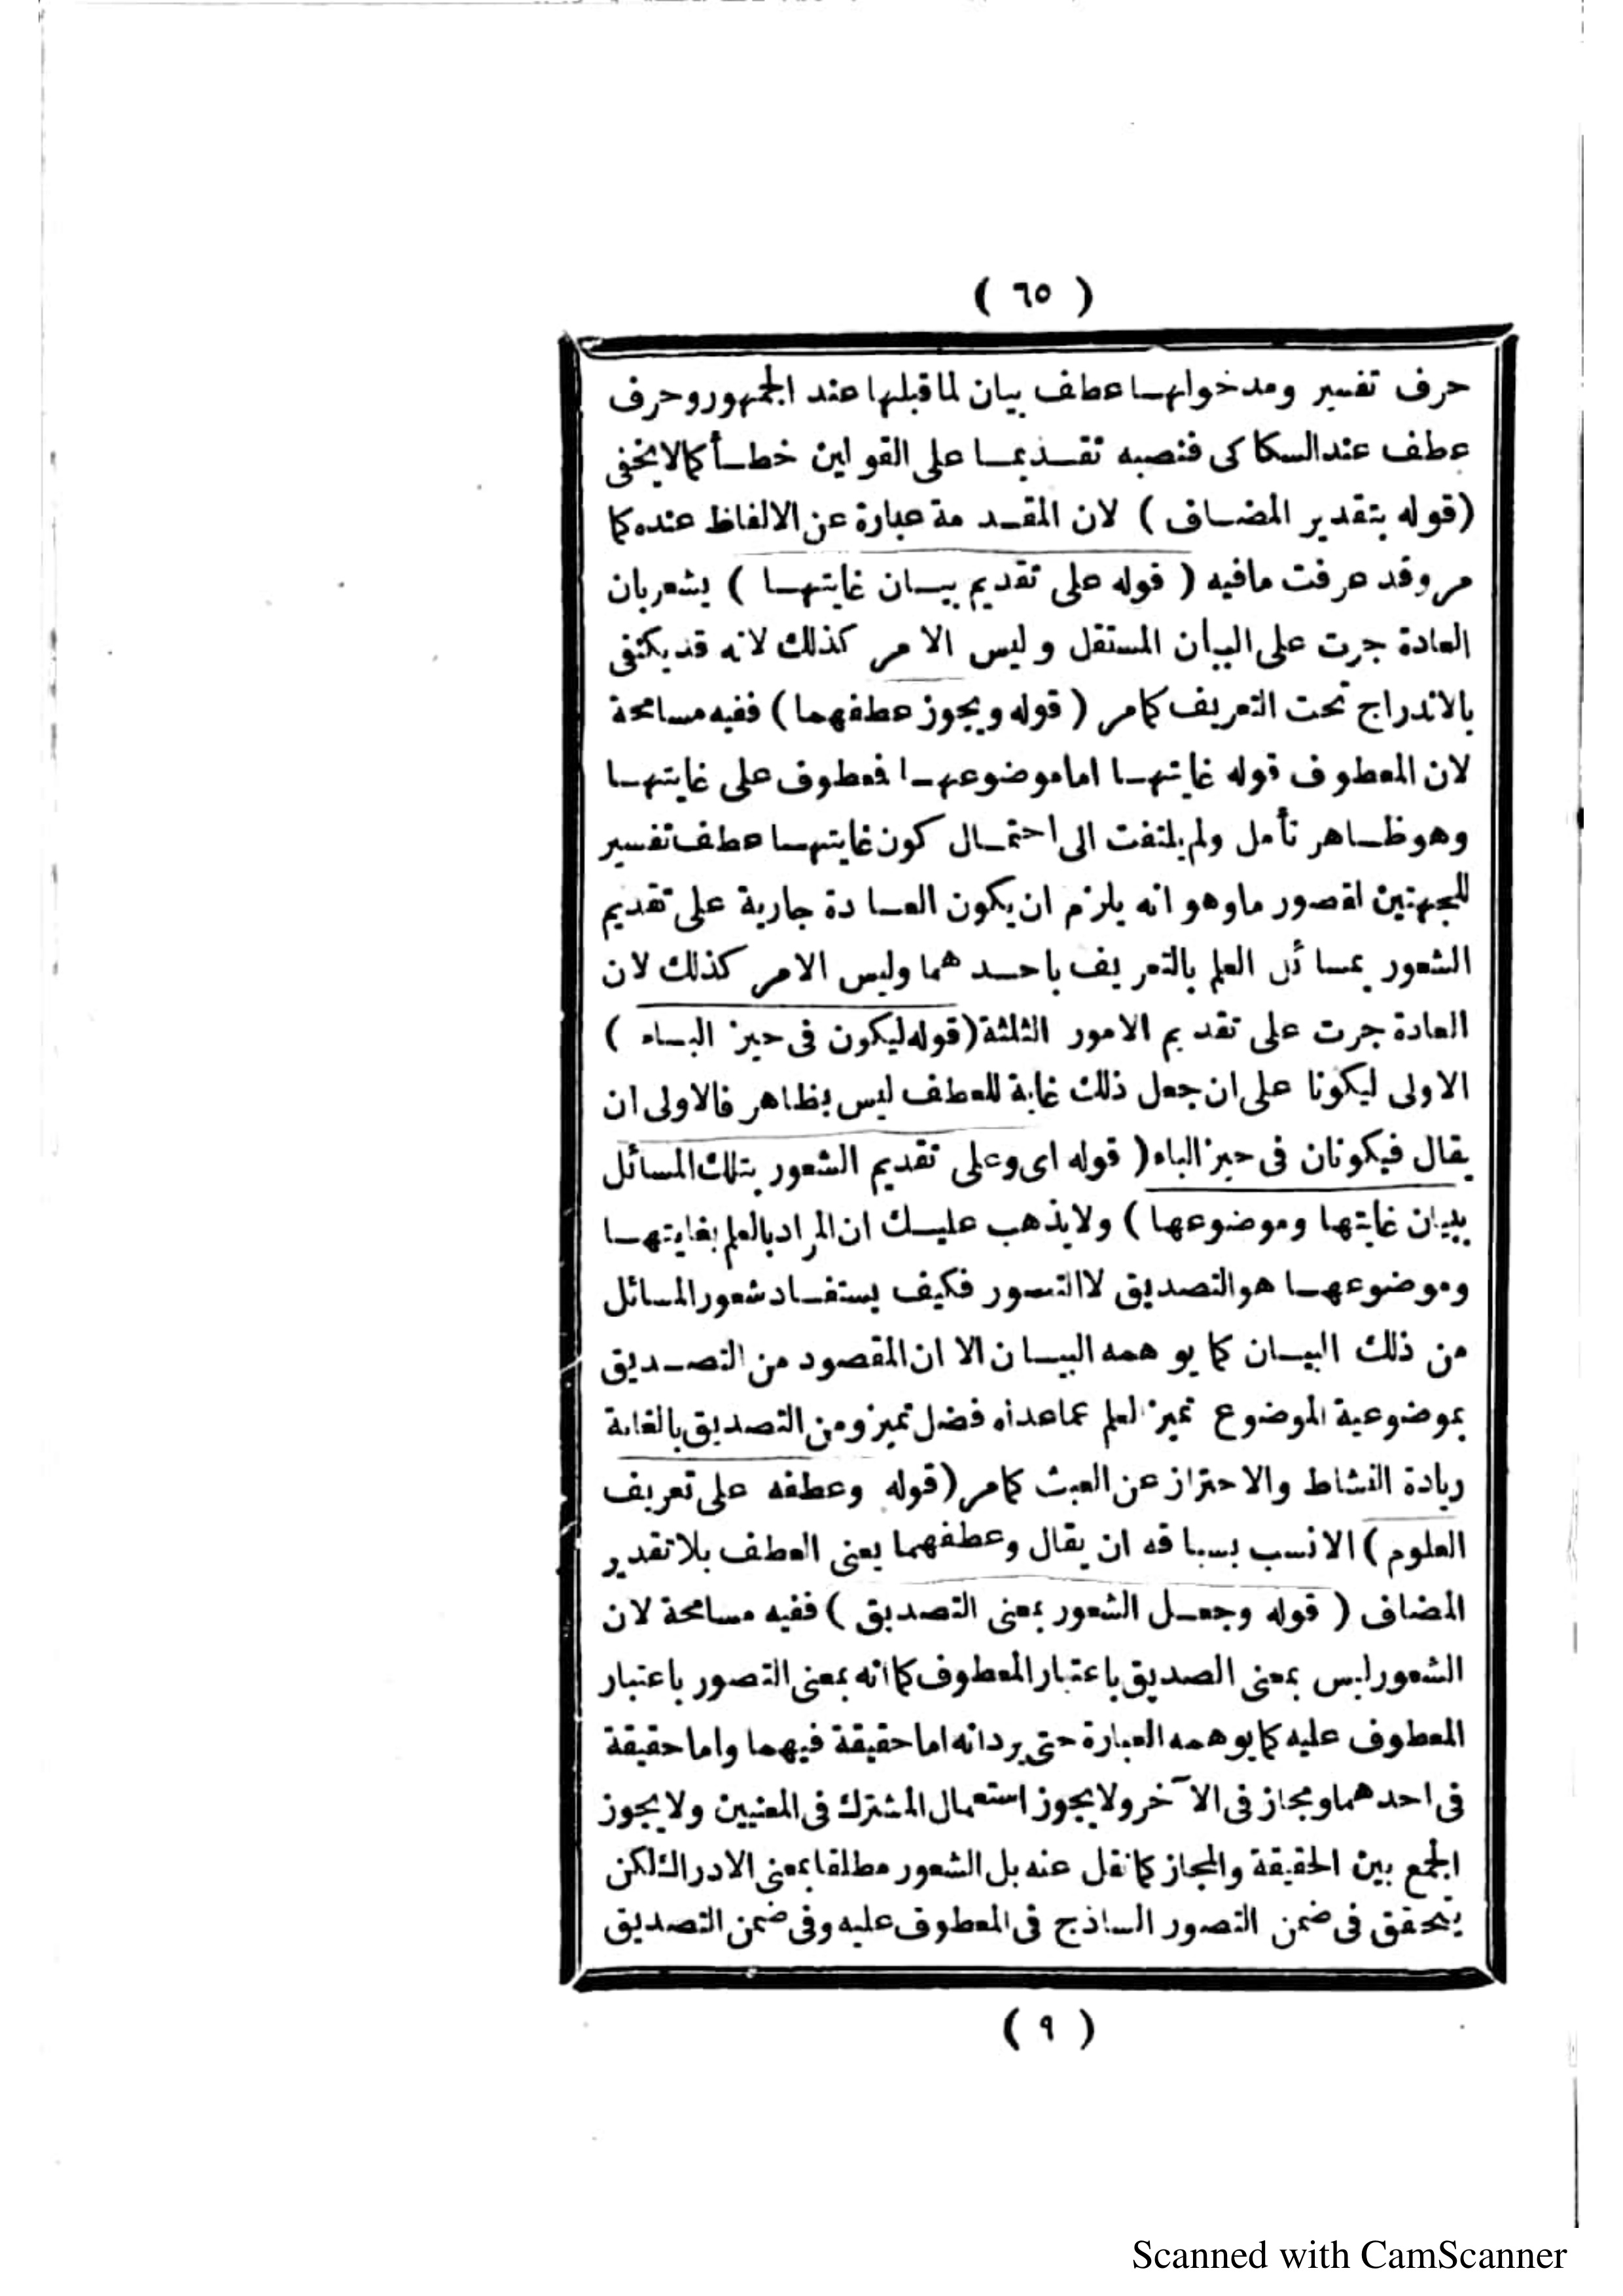 ( ٦٥ )
حرف تفسير ومدخولهـا عطف بيان لما قبلها عند الجمهور وحرف
عطف عند السكاكى فنصبه تقـديمـا على القولين خطـأ كمالا يخفى
(قوله بتقدير المضـاف ) لان المقـدمة عبارة عن الالفاظ عنده كما
مر وقد عرفت مافيه ( قوله على تقديم بيـان غايتهـا ) يشعر بان
العادة جرت على البيان المستقل وليس الامر كذلك لانه قد يكتفى
بالاندراج تحت التعريف كمامر ( قوله ويجوز عطفهما ) ففيه مسامحة
لان المعطوف قوله غايتهـا اما موضوعهـا فمعطوف على غايتهـا
وهو ظـاهر تأمل ولم يلتفت الى احتمـال كون غايتهـا عطف تفسير
للجهتين لقصور ما وهو انه يلزم ان يكون العـادة جارية على تقديم
الشعور بمسائل العلم بالتعريف باحـدهما وليس الامر كذلك لان
العادة جرت على تقديم الامور الثلثة (قوله ليكون فى حيز البـاء )
الاولى ليكونا على ان جعل ذلك غاية للعطف ليس بظاهر فالاولى ان
يقال فيكونان فى حيز الباء ( قوله اى وعلى تقديم الشعور بتلك المسائل
ببيان غايتها وموضوعها ) ولا يذهب عليـك ان المراد بالعلم بغايتهـا
وموضوعهـا هو التصديق لا التصور فكيف يستفـاد شعور المسائل
من ذلك البيـان كما يوهمه البيـان الا ان المقصود من التصـديق
بموضوعية الموضوع تميز العلم عما عداه فضل تميز ومن التصديق بالغاية
زيادة النشاط والاحتراز عن العبث كمامر (قوله وعطفه على تعريف
العلوم ) الانسب بسباقه ان يقال وعطفهما يعنى العطف بلا تقدير
المضاف ( قوله وجعـل الشعور بمعنى التصديق ) ففيه مسامحة لان
الشعور ليس بمعنى الصديق باعتبار المعطوف كما انه بمعنى التصور باعتبار
المعطوف عليه كما يوهمه العبارة حتى يرد انه اما حقيقة فيهما واما حقيقة
فى احدهما ومجاز فى الآخر ولا يجوز استعمال المشترك فى المعنيين ولا يجوز
الجمع بين الحقيقة والمجاز كما نقل عنه بل الشعور مطلقا بمعنى الادراك لكن
يتحقق فى ضمن التصور الساذج فى المعطوف عليه وفى ضمن التصديق
( ٩ )
Scanned with CamScanner